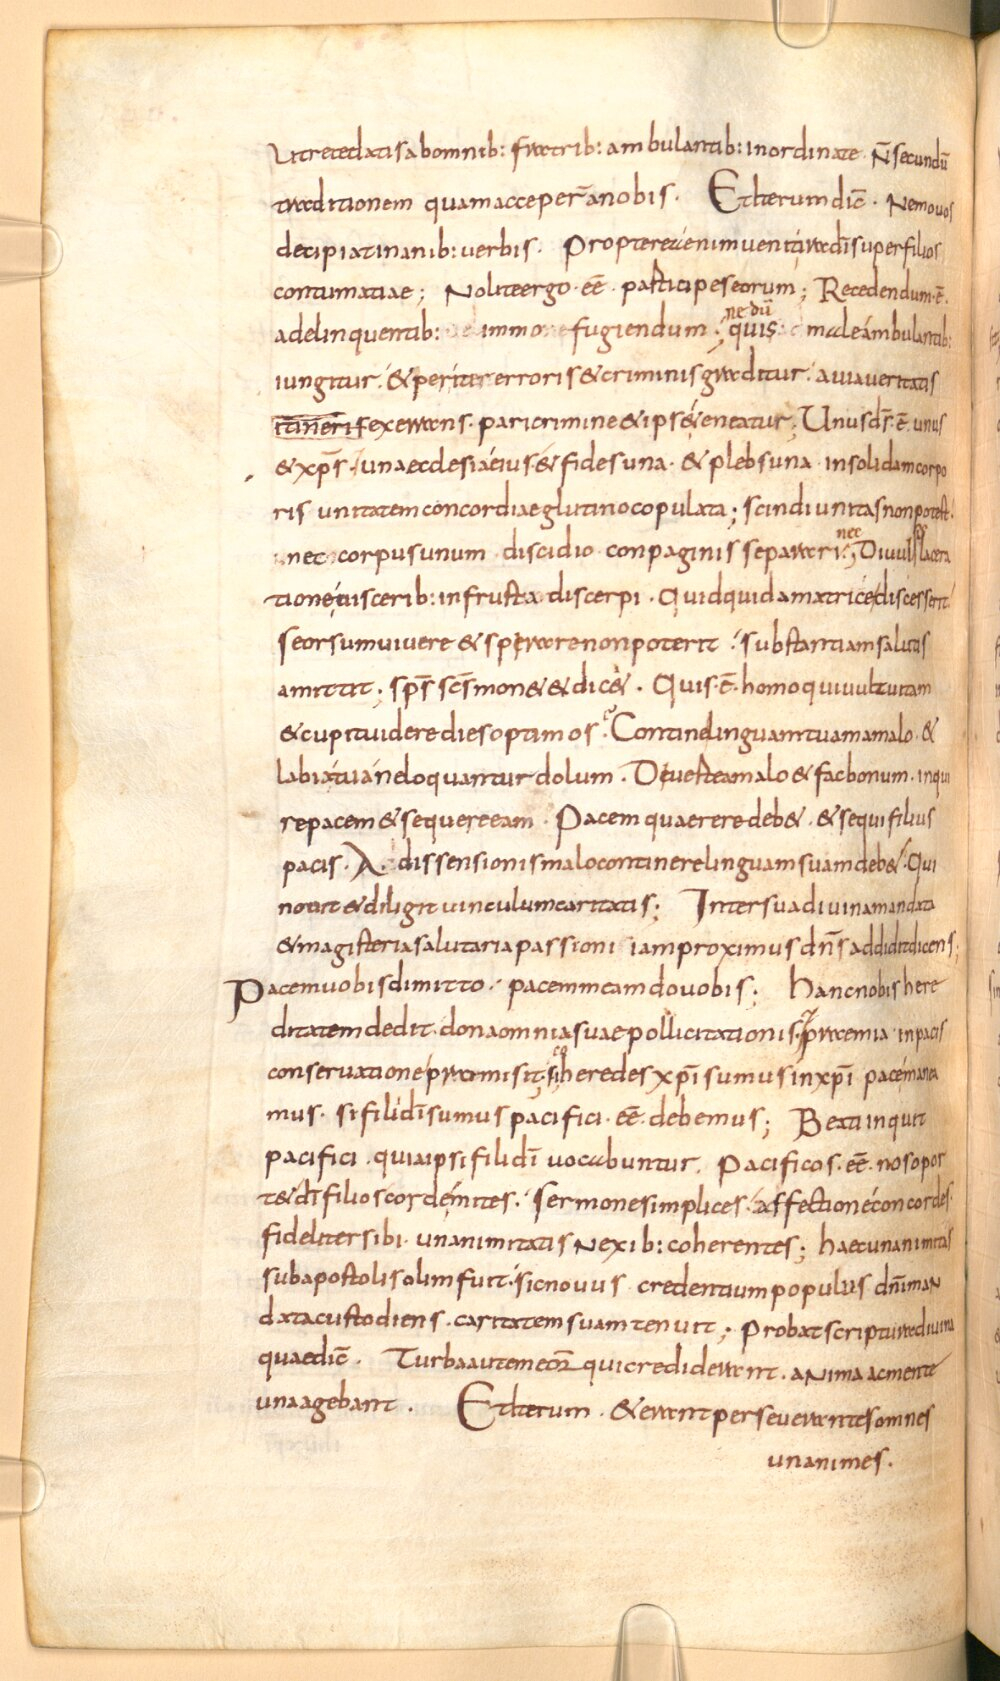 Ut recedatis ab omnib: fratrib: ambulantib: inordinate. N̄ secundū
traditionem quam acceper̄ a nobis. Et iterum dic̄. Nemo vos
decipiat inanib: verbis. Propterea enim venit ira dī super filios
contumatiae; Nolite ergo. eē. participes eorum; Recedendum. ē.
a delinquentib: immo fugiendum. ne dū quis male ambulantib:
iungitur. & per iter erroris & criminis graditur. a via veritatis
itineris exerrans. pari crimine & ipse teneatur; Unus ds̄. ē. unus
& xp̄s. una ecclesia eius & fides una. & plebs una in solidam corpo
ris unitatem concordiae glutino copulata; scindi unitas non potest.
nec corpus unum discidio conpaginis separari. nec Divulsis lacera
tione visceribi: in frusta discerpi. Quidquid a matrice discesserit
seorsum vivere & spirare non poterit. substantiam salutis
amittit; sp̄s sc̄s monet & dicit. Quis. ē. homo qui vult vitam
& cupit videre dies optimos. Contine linguam tuam a malo. &
labia tua ne loquantur dolum. Deverte a malo & fac bonum. inqui
re pacem & sequere eam. Pacem quaerere deb&. & sequi filius
pacis. A dissensionis malo continere linguam suam deb&. Qui
novit & diligit vinculum caritatis; Inter sua divina mandata
& magisteria salutaria passioni iam proximus dn̄s addidit dicens;
Pacem vobis dimitto. pacem meam do vobis; Hanc nobis here
ditatem dedit. dona omnia suae pollicitationis. & praemia in pacis
conservatione promisit; si heredes xp̄i sumus in xp̄i pace manea
mus. si fili dī sumus pacifici. eē. debemus; Beati inquit
pacifici. quia ipsi fili dī vocabuntur. Pacificos. eē. nos opor
t& dī filios corde mites. sermone simplices. affectione concordes.
fideliter sibi unanimitatis nexib: coherentes; haec unanimitas
sub apostolis olim fuit. sic novus credentium populus dn̄i man
data custodiens. caritatem suam tenuit; Probat scriptura divina
quae dic̄. Turba autem eoꝝ qui crediderant. anima ac mente
una agebant. Et iterum. & erant perseverantes omnes
unanimes.